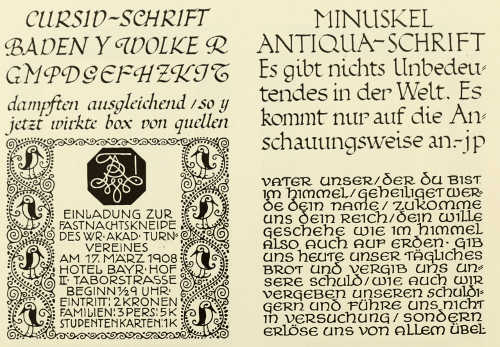 CURSIV-SCHRIFT
BADEN Y WOLKE R
GMPDGEFHZKIT
dampften ausgleichend / so y
jetzt wirkte box von quellen
EINLADUNG ZUR
FASTNACHTSKNEIPE
DES WR·AKAD·TURN-
VEREINES
AM 17. MÄRZ 1908
HOTEL BAYR·HOF
II· TABORSTRASSE
BEGINN ½9 UHR·
EINTRITT: 2 KRONEN
FAMILIEN: 3 PERS: 5 K
STUDENTENKARTEN: 1 K
MINUSKEL
ANTIQUA-SCHRIFT
Es gibt nichts Unbedeu-
tendes in der Welt. Es
kommt nur auf die An-
schauungsweise an.-jp
VATER UNSER/DER DU BIST
IM HIMMEL/GEHEILIGET WER-
DE DEIN NAME/ZUKOMME
UNS DEIN REICH/DEIN WILLE
GESCHEHE WIE IM HIMMEL
ALSO AUCH AUF ERDEN· GIB
UNS HEUTE UNSER TÄGLICHES
BROT UND VERGIB UNS UN-
SERE SCHULD/WIE AUCH WIR
VERGEBEN UNSEREN SCHULDI-
GERN UND FÜHRE UNS NICHT
IN VERSUCHUNG/SONDERN
ERLÖSE UNS VON ALLEM ÜBEL·